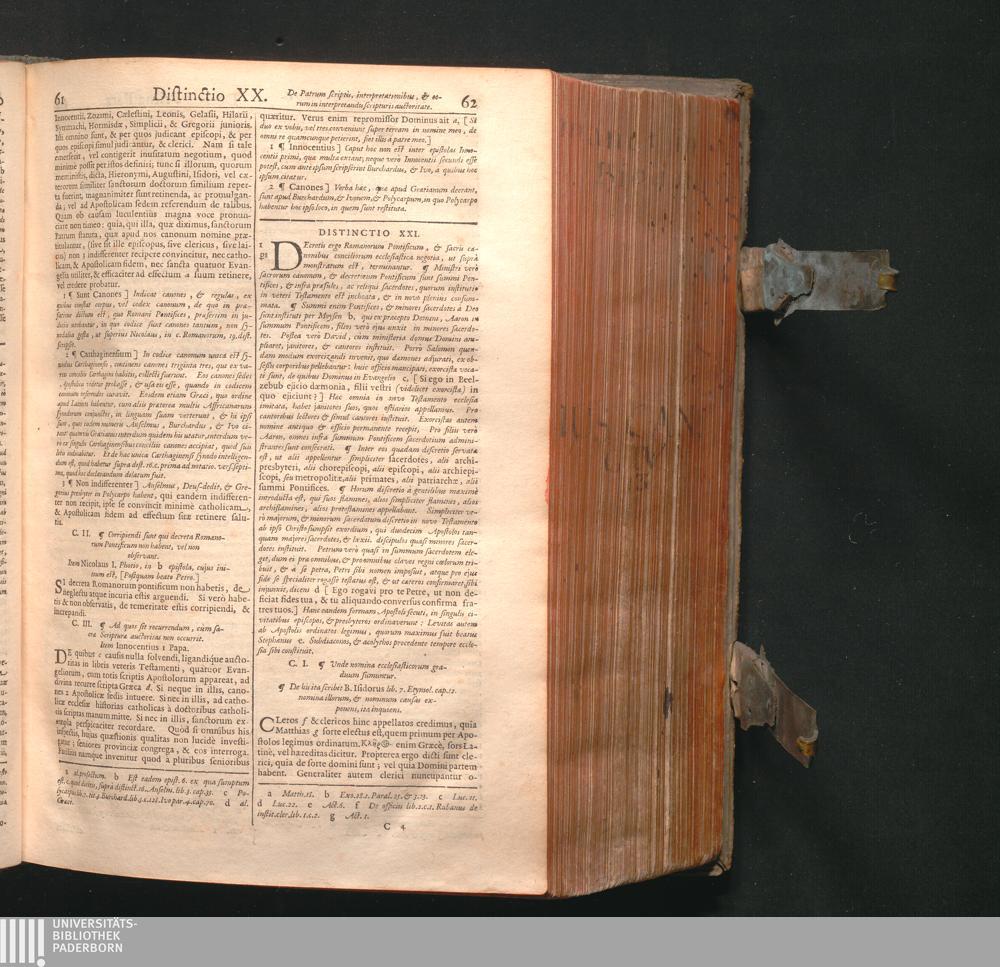 61 Distinctio XX.
De Patrum scriptis, interpretationibus, & eo-
rum in interpretandis scripturis auctoritate. 62
Innocentii, Zozimi, Cælestini, Leonis, Gelasii, Hilarii,
Symmachi, Hormisdæ, Simplicii, & Gregorii junioris.
Isti omnino sunt, & per quos judicant episcopi, & per
quos episcopi simul judicantur, & clerici. Nam si tale
emerserit, vel contigerit inusitatum negotium, quod
minime possit per istos definiri; tunc si illorum, quorum
meministis, dicta, Hieronymi, Augustini, Isidori, vel cæ-
terorum similiter sanctorum doctorum similium reper-
ta fuerint, magnanimiter sunt retinenda, ac promulgan-
da; vel ad Apostolicam sedem referendum de talibus.
Quam ob causam luculentius magna voce pronun-
ciare non timeo: quia, qui illa, quæ diximus, sanctorum
Patrum statuta, quæ apud nos canonum nomine præ-
titulantur, (sive sit ille episcopus, sive clericus, sive lai-
cus) non indifferenter recipere convincitur, nec catho-
licam, & Apostolicam fidem, nec sancta quatuor Evan-
gelia utiliter, & efficaciter ad effectum suum retinere,
vel credere probatur.
1 ¶ Sunt Canones ] Indicat canones, & regulas, ex
quibus constat corpus, vel codex canonum, de quo in præ-
fatione dictum est, quo Romani Pontifices, præsertim in ju-
diciis utebantur, in quo codice sunt canones tantum, non sy-
nodalia gesta, ut superius Nicolaus, in c. Romanorum, 19. dist.
scripsit.
2 ¶ Carthaginensium ] In codice canonum unica est sy-
nodus Carthaginensis, continens canones triginta tres, qui ex va-
riis conciliis Carthagini habitis, collecti fuerunt. Eos canones sedes
Apostolica videtur probasse, & usa eis esse, quando in codicem
canonum referendos curavit. Eosdem etiam Græci, quo ordine
apud Latinos habentur, cum aliis præterea multis Affricanarum
synodorum conjunctis, in linguam suam verterunt, & hi ipsi
sunt, quos iisdem numeris Anselmus, Burchardus, & Ivo ci-
tant
C. II. ¶ Corripiendi sunt qui decreta Romano-
rum Pontificum non habent, vel non
observant.
Item Nicolaus I. Photio, in b epistola, cujus ini-
tium est, [Postquam beato Petro.]
SI decreta Romanorum pontificum non habetis, de
neglectu atque incuria estis arguendi. Si vero habe-
tis & non observatis, de temeritate estis corripiendi, &
increpandi.
C. III. ¶ Ad quos sit recurrendum, cum sa-
cræ Scripturæ auctoritas non occurrit.
Item Innocentius 1 Papa.
DE quibus c causis nulla solvendi, ligandique aucto-
ritas in libris veteris Testamenti, quatuor Evan-
geliorum, cum totis scriptis Apostolorum appareat, ad
divina recurre scripta Græca d. Si neque in illis, cano-
nes 2 Apostolicæ sedis intuere. Si nec in illis, ad catho-
licæ ecclesiæ historias catholicas à doctoribus catholi-
cis scriptas manum mitte. Si nec in illis, sanctorum ex-
empla perspicaciter recordare. Quod si omnibus his
inspectis, hujus quæstionis qualitas non lucidè investi-
gatur; seniores provinciæ congrega, & eos interroga.
Facilius namque invenitur quod à pluribus senioribus
a al. profectum. b Est eadem epist. 6. ex qua sumptum
quæritur. Verus enim repromissor Dominus ait a, [ Si
duo ex vobis, vel tres convenerint super terram in nomine meo, de
omni re quamcunque petierint, fiet illis à patre meo.]
1 ¶ Innocentius ] Caput hoc non est inter epistolas Inno-
centii primi, quæ multæ extant, neque verò Innocentii secundi esse
potest, cum ante ipsum scripserint Burchardus, & Ivo, a quibus hoc
ipsum citatur.
2 ¶ Canones ] Verba hæc, quæ apud Gratianum deerant,
sunt apud Burchardum, & Ivonem, & Polycarpum, in quo Polycarpo
habentur hoc ipso loco, in quem sunt restituta.
DISTINCTIO XXI.
DEcretis ergo Romanorum Pontificum, & sacris ca-
nonibus conciliorum ecclesiastica negotia, ut suprà
monstratum est, terminantur. ¶ Ministri verò
sacrorum canonum, & decretorum Pontificum sunt summi Pon-
tifices, & infra præsules, ac reliqui sacerdotes, quorum institutio
in veteri Testamento est inchoata, & in novo plenius consum-
mata. ¶ Summi enim Pontifices, & minores sacerdotes à Deo
sunt instituti per Moysen b, qui ex præcepto Domini, Aaron in
summum Pontificem, filios verò ejus unxit in minores sacerdo-
tes. Postea verò David, cum ministeria domus Domini am-
pliaret, janitores, & cantores instituit. Porrò Salomon quen-
dam modum exorcizandi invenit, quo dæmones adjurati, ex ob-
sessis corporibus pellebantur: huic officio mancipati, exorcistæ voca-
ti sunt, de quibus Dominus in Evangelio c, [ Si ego in Beel-
zebub ejicio dæmonia, filii vestri (videlicet exorcistæ) in
quo ejiciunt? ] Hæc omnia in novo Testamento ecclesia
imitata, habet janitores suos, quos ostiarios appellamus. Pro
cantoribus lectores & simul cantores instituit. Exorcistas autem
nomine antiquo & officio permanente recepit, Pro filiis verò
Aaron, omnes infra summum Pontificem sacerdotium admini-
strantes sunt consecrati. ¶ Inter eos quædam discretio servata
est, ut alii appellentur simpliciter sacerdotes, alii archi-
presbyteri, alii chorepiscopi, alii episcopi, alii archiepi-
scopi, seu metropolitæ, alii primates, alii patriarchæ, alii
summi Pontifices. ¶ Horum discretio à gentibus maximè
introducta est, qui suos flamines, alios simpliciter flamines, alios
archiflamines, alios protoflamines appellabant. Simpliciter ve-
rò majorum, & minorum sacerdotum discretio in novo Testamento
ab ipso Christo sumpsit exordium, qui duodecim Apostolos tan-
quam majores sacerdotes, & lxxii. discipulos quasi minores sacer-
dotes instituit. Petrum verò quasi in summum sacerdotem ele-
git, dum ei præ omnibus, & pro omnibus claves regni cœlorum tri-
buit, & à se petra, Petri sibi nomen imposuit, atque pro ejus
fide se specialiter rogasse testatus est, & ut cæteros confirmaret, sibi
injunxit, dicens d [ Ego rogavi pro te Petre, ut non de-
ficiat fides tua, & tu aliquando conversus confirma fra-
tres tuos.] Hanc eandem formam Apostoli secuti, in singulis ci-
vitatibus episcopos, & presbyteros ordinaverunt: Levitas autem
ab Apostolis ordinatos legimus, quorum maximus fuit beatus
Stephanus e. Subdiaconos, & acolythos procedente tempore eccle-
sia sibi constituit.
C. I. ¶ Unde nomina ecclesiasticorum gra-
duum sumuntur.
¶ De his ita scribit B. Isidorus lib. 7. Etymol. cap. 12.
nomina illorum, & nominum causas ex-
ponens, ita inquiens.
CLeros f & clericos hinc appellatos credimus, quia
Matthias g sorte electus est, quem primum per Apo-
stolos legimus ordinatum. Κλῆρος enim Græcè, sors La-
tinè, vel hæreditas dicitur. Propterea ergo dicti sunt cle-
rici, quia de sorte domini sunt; vel quia Domini partem
habent. Generaliter autem clerici nuncupantur o-
a Matth. 18. b Exo. 28. 1. Paral. 23. & 3. 23. c Luc. 11.
d Luc. 22. e Act. 6. f De officiis lib. 2. c. 1. Rabanus de
instit. cler. lib. 1. c. 2. g Act. 1.
C 4
UNIVERSITÄTS-
BIBLIOTHEK
PADERBORN